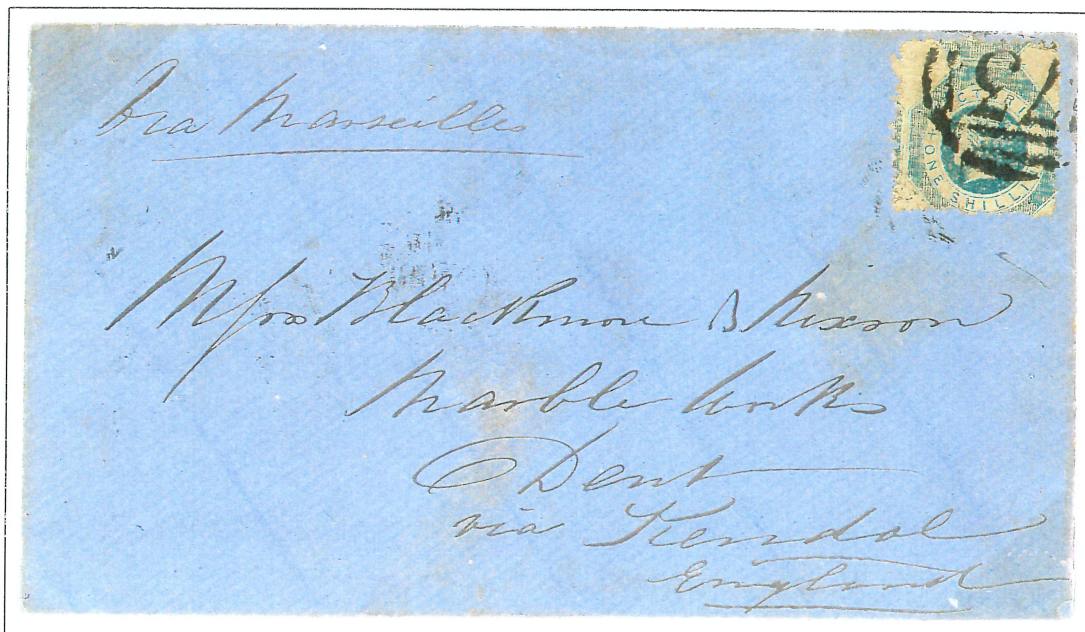 Via Marseilles
73
VICTORIA
ONE SHILLING
Messrs Blackmore & Nixson
Marble Works
Dent
via Kendal
England